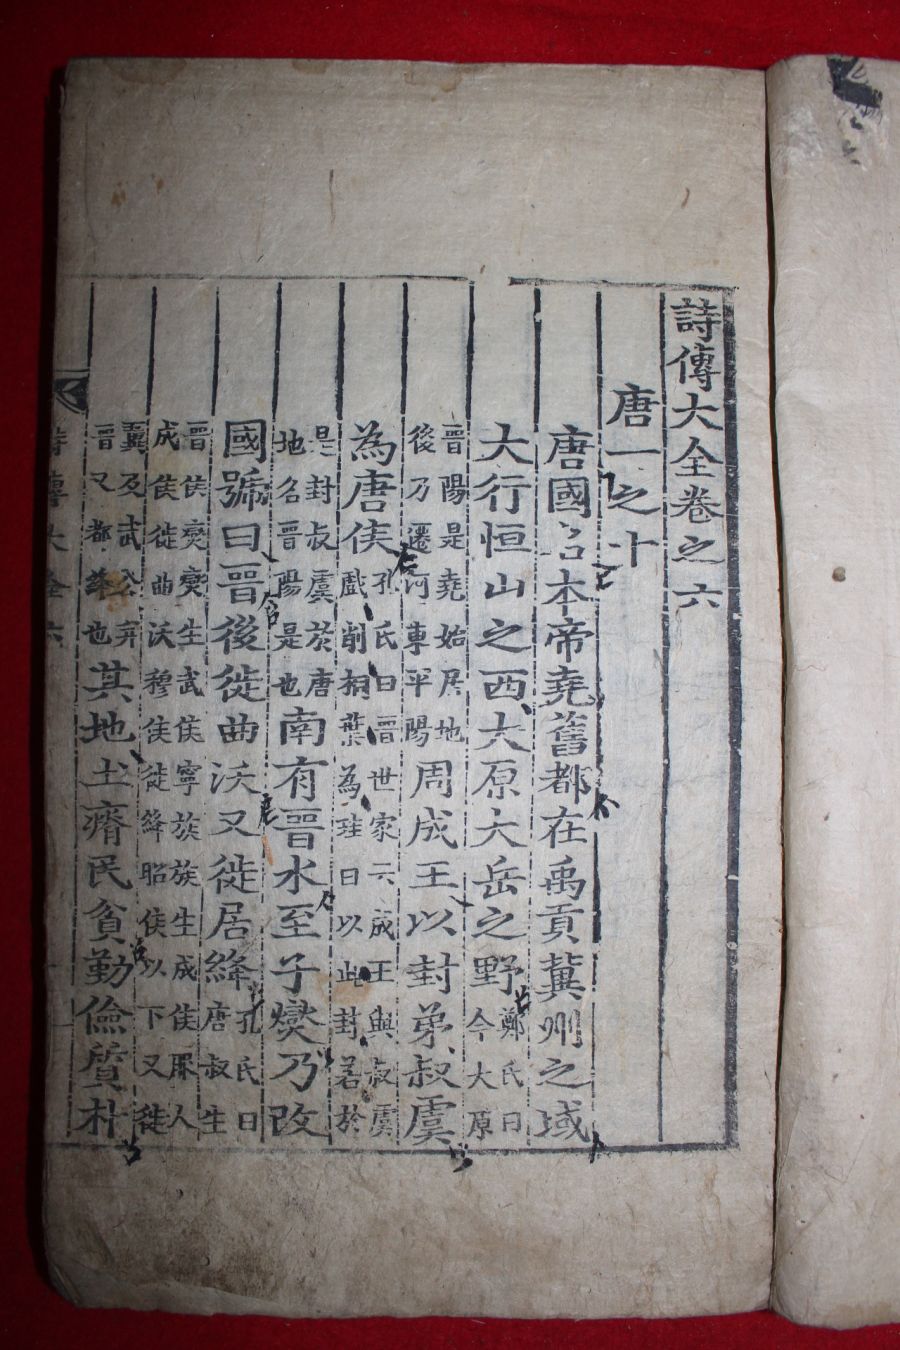 詩傳大全卷之六
唐一之十
唐國名本帝堯舊都在禹貢冀州之域
大行恒山之西大原大岳之野
鄭氏曰
今大原
晋陽是堯始居地
後乃遷河東平陽
周成王以封弟叔虞
為唐侯
孔氏曰晋世家云成王與叔虞
戱削桐葉為珪曰以此封若於
是封叔虞於唐
地名晋陽是也
南有晋水至子燮乃改
國號曰晋後徙曲沃又徙居絳
孔氏曰
唐叔生
晋侯燮燮生武侯寧族族生成侯服人
成侯徙曲沃穆侯徙絳昭侯以下又徙
翼及武公并
晋又都絳也
其地土瘠民貧勤儉質朴
詩傳大全六